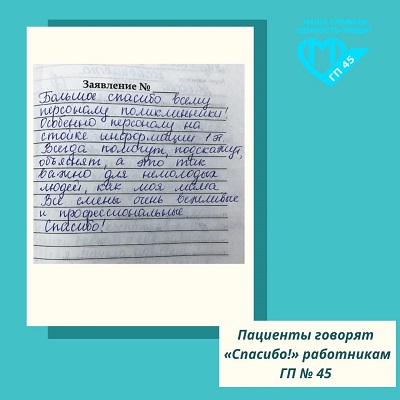 НАША ГЛАВНАЯ
ЦЕННОСТЬ - ЛЮДИ
ГП 45
Заявление №
Большое спасибо всему
персоналу поликлинники!
Особенно персоналу на
стойке информации 1 эт.
Всегда помогут, подскажут,
объяснят, а это так
важно для немолодых
людей, как моя мама
Все смены очень вежливые
и профессиональные
Спасибо!
Пациенты говорят
«Спасибо!» работникам
ГП № 45